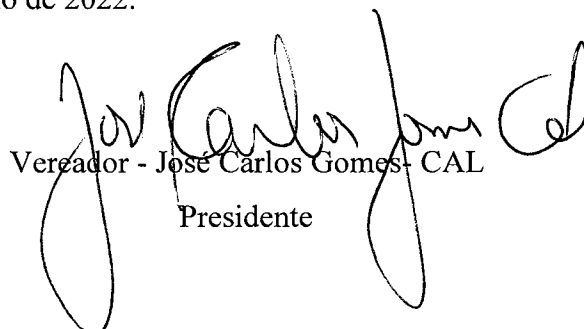 o de 2022.
José Carlos Gomes Cal
Vereador - José Carlos Gomes- CAL
Presidente